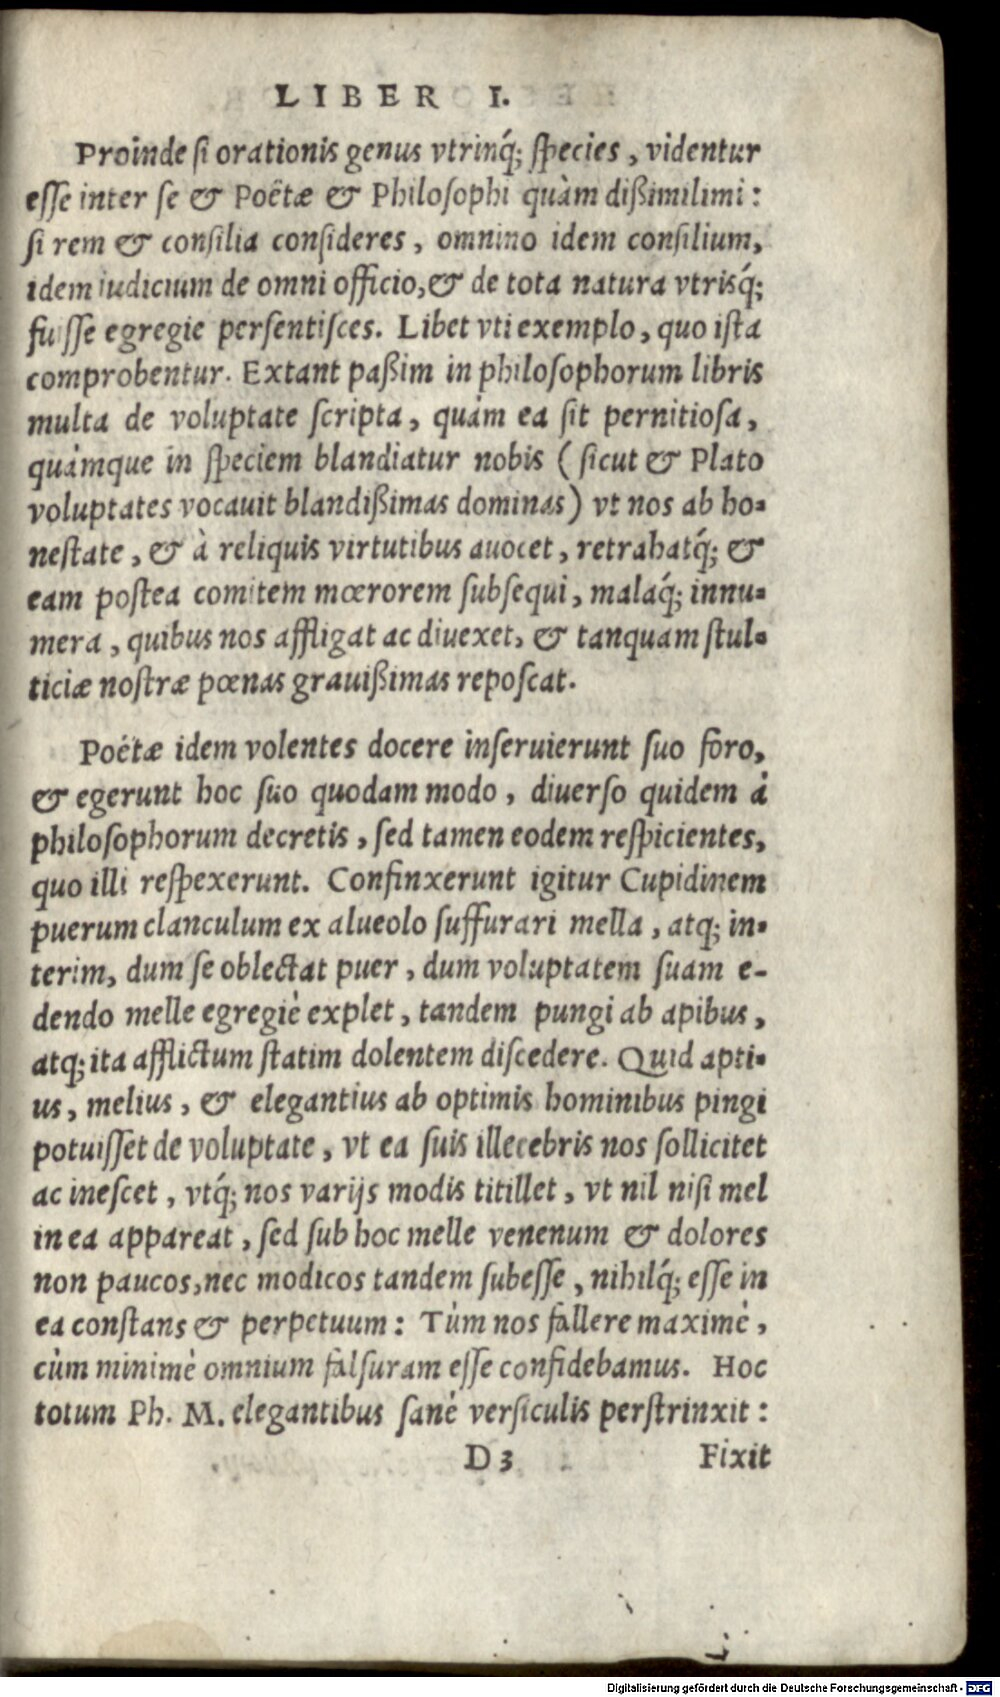 LIBER I.
Proinde si orationis genus vtrinq́; species, videntur
esse inter se & Poëtæ & Philosophi quàm dißimilimi:
si rem & consilia consideres, omnino idem consilium,
idem iudicium de omni officio, & de tota natura vtrisq́;
fuisse egregie persentisces. Libet vti exemplo, quo ista
comprobentur. Extant paßim in philosophorum libris
multa de voluptate scripta, quàm ea sit pernitiosa,
quàmque in speciem blandiatur nobis (sicut & Plato
voluptates vocauit blandißimas dominas) vt nos ab ho-
nestate, & à reliquis virtutibus auocet, retrahatq́; &
eam postea comitem mœrorem subsequi, malaq́; innu-
mera, quibus nos affligat ac diuexet, & tanquam stul-
ticiæ nostræ pœnas grauißimas reposcat.
Poëtæ idem volentes docere inseruierunt suo foro,
& egerunt hoc suo quodam modo, diuerso quidem à
philosophorum decretis, sed tamen eodem respicientes,
quo illi respexerunt. Confinxerunt igitur Cupidinem
puerum clanculum ex alueolo suffurari mella, atq; in-
terim, dum se oblectat puer, dum voluptatem suam e-
dendo melle egregiè explet, tandem pungi ab apibus,
atq; ita afflictum statim dolentem discedere. Quid apti-
us, melius, & elegantius ab optimis hominibus pingi
potuisset de voluptate, vt ea suis illecebris nos sollicitet
ac inescet, vtq́; nos varijs modis titillet, vt nil nisi mel
in ea appareat, sed sub hoc melle venenum & dolores
non paucos, nec modicos tandem subesse, nihilq́; esse in
ea constans & perpetuum: Tùm nos fallere maximè,
cùm minimè omnium falsuram esse confidebamus. Hoc
totum Ph. M. elegantibus sanè versiculis perstrinxit:
D3 Fixit
Digitalisierung gefördert durch die Deutsche Forschungsgemeinschaft - DFG